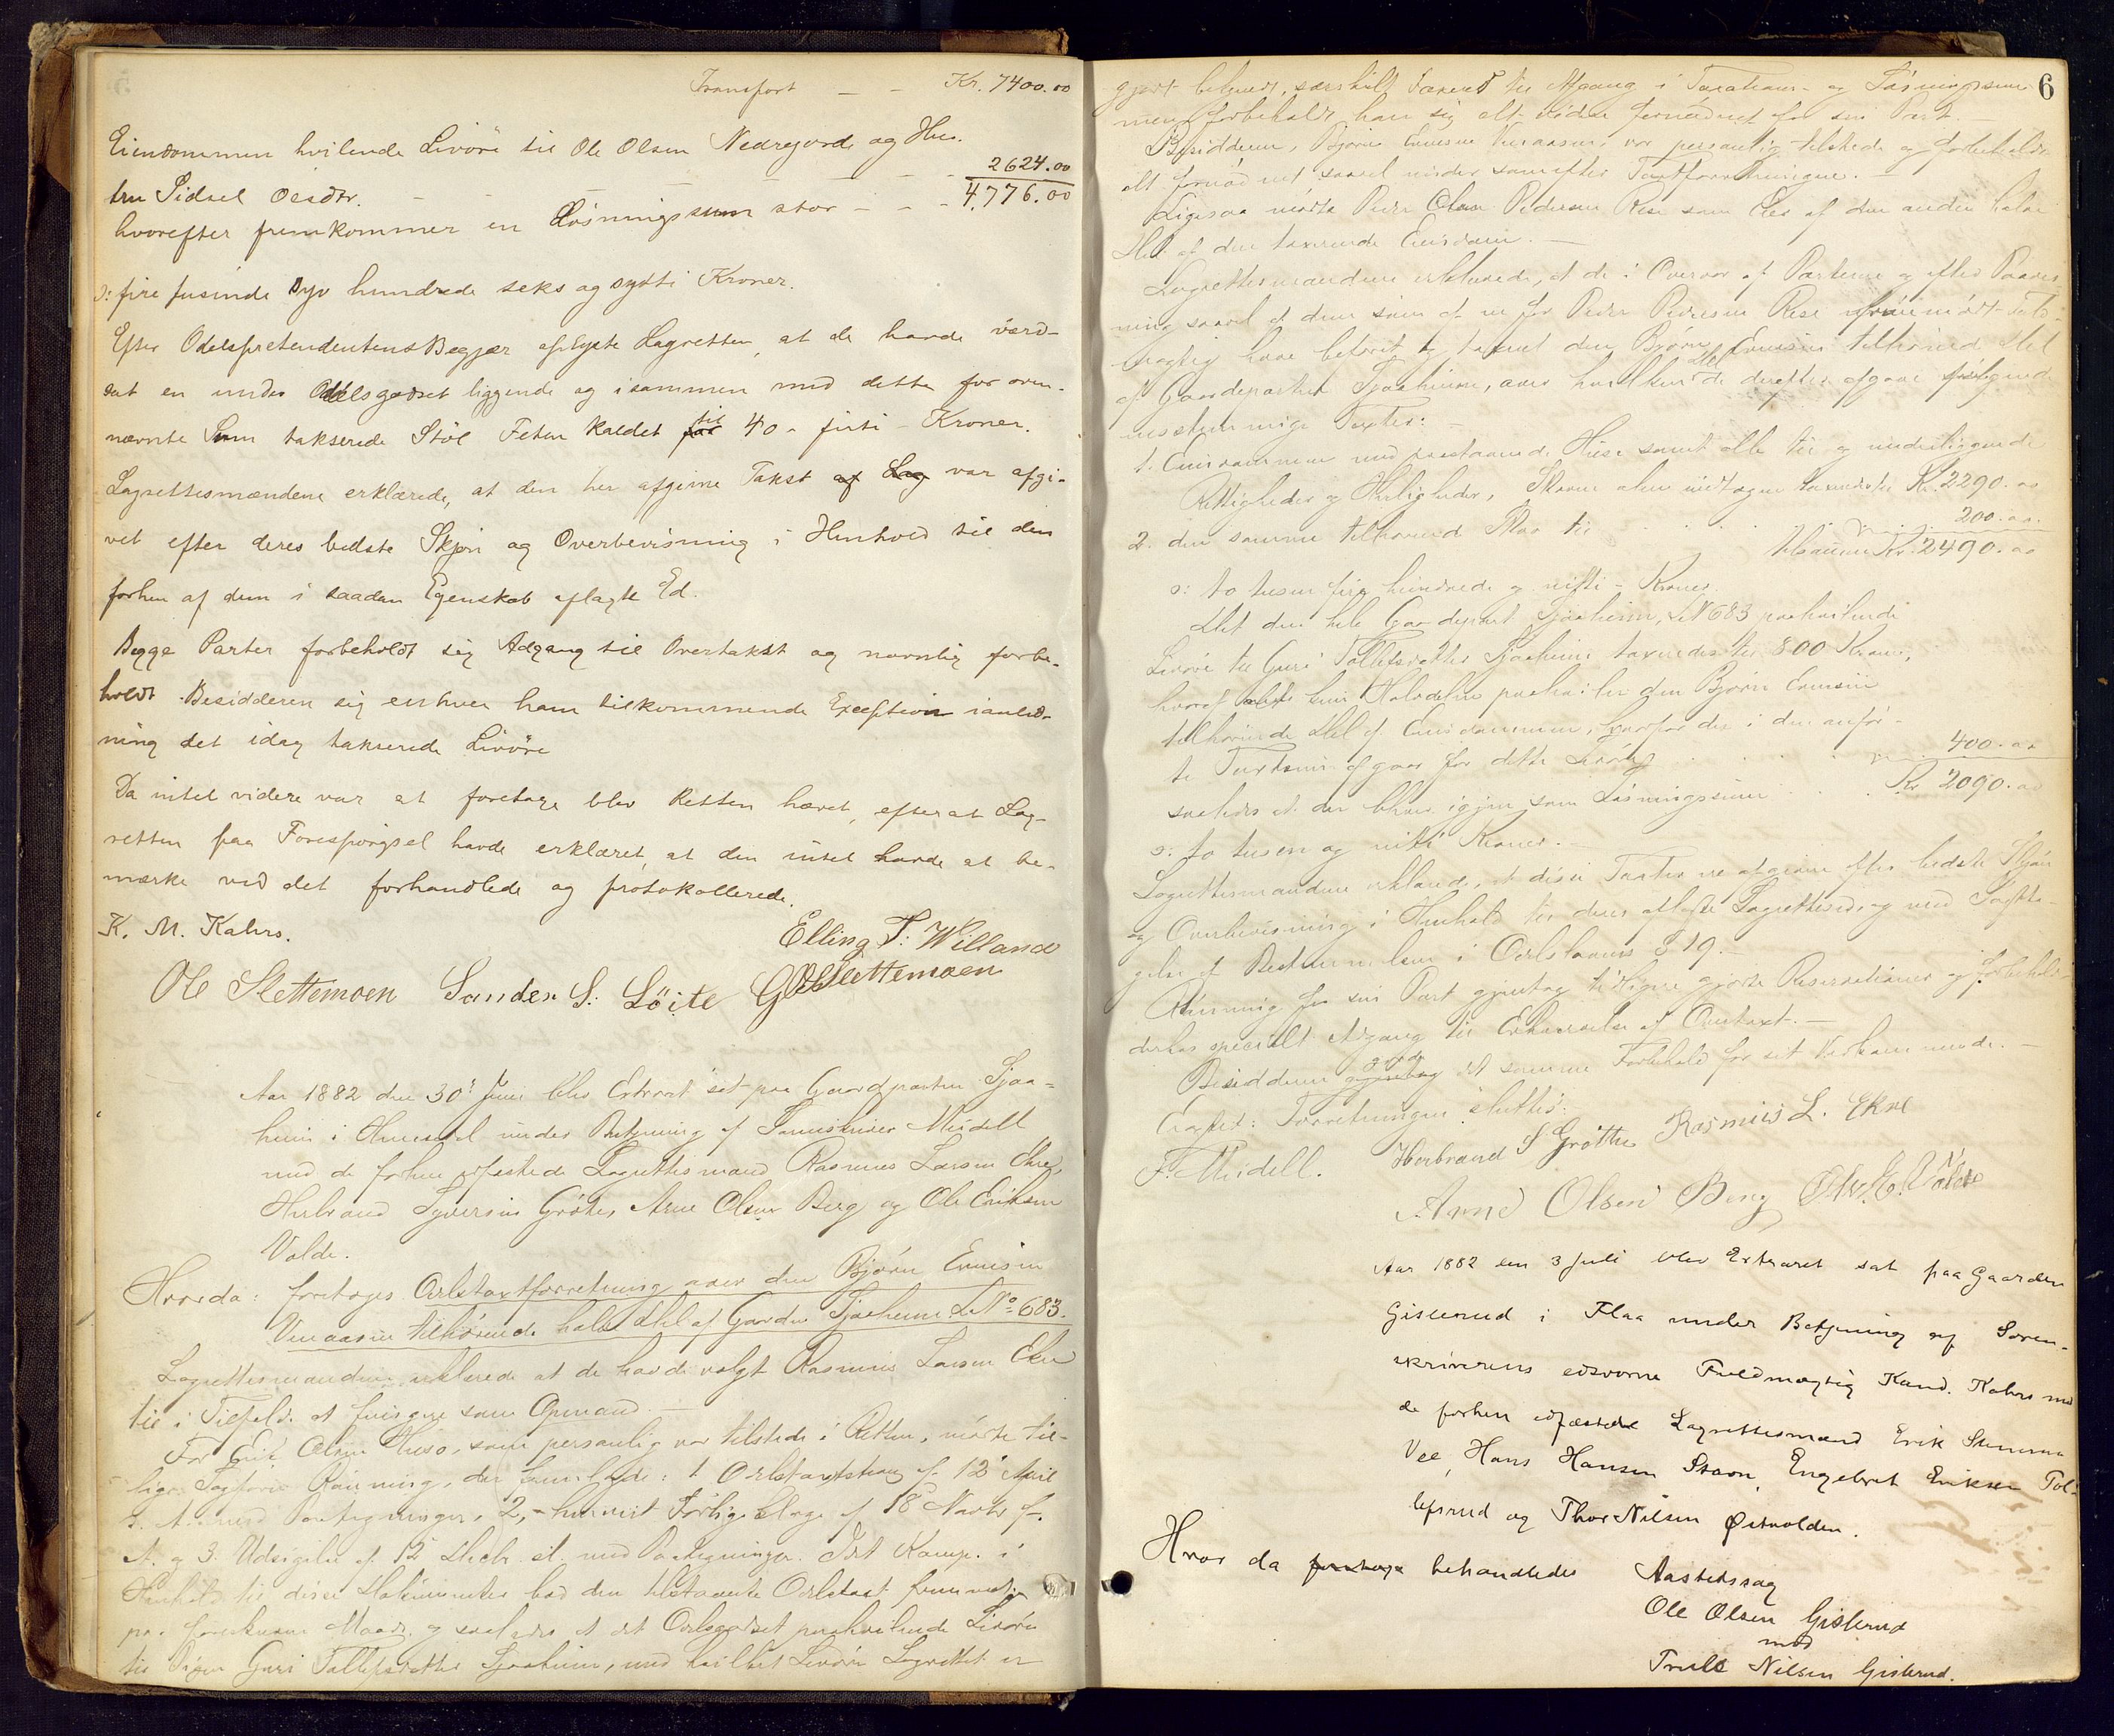 Transport — — Kr. 7400.00
Eiendommen hvilende Livöre til Ole Olsen Nedregord og Hus-
tru Sidsel Olsdtr. - - - - - - 2624.00
hvorefter fremkommer en Lösningssum stor - - - 4.776.00
ɔ: fire tusinde syv hundrede seks og sytti Kroner.
Efter OdelspretendentensBegjær oplyste Lagretten, at de havde værd-
sat en under Odelsgodset liggende og isammen med dette for oven-
nævnte Sum takserede Stöl Feten kaldet til 40 - firti - Kroner.
Lagrettesmændene erklærede, at den her afgivne Takst af Lag var afgi-
vet efter deres bedste Skjön og Overbevisning i Henhold til den
forhen af dem i saadan Egenskab aflagte Ed.
Begge Parter forbeholdt sig Adgang til Overtakst og navnlig forbe-
holdt Besidderen sig enhver ham tilkommende Exception ianled-
ning det idag takserede Livöre
Da intet videre var at foretage blev Retten hævet, efter at Lag-
retten paa Forespörgsel havde erklæret, at den intet havde at be-
mærke ved det forhandlede og protokollerede.
K. M. Kahrs. Elling T. Willand
Ole Slettemoen Sander S. Löite G Slettemoen
Aar 1882 den 30' Juni blev Extraret sat paa Gaardparten Sjaa-
heim i Hemsedal under Betjening af Sorenskriver Meidell
med de forhen edfæstede Lagrettesmænd Rasmus Larsen Ekre,
Herbrand Syversen Gröthe, Arne Olsen Berg og Ole Eriksen
Volde.
Hvorda: foretoges Odelstaxtforretning over den Björn Ennisen
Venaasen tilhörende halve Del af Garden Sjaaheim LNo 683.
Lagrettesmændene erklærede at de havde valgt Rasmus Larsen Ekre
til i Tilfælde at fungere som Opmand. —
For Olsen som personlig var tilstede i Retten, mödte til-
lige Sagförer Rönning, der fremlagde: 1. af 12' April
2, - af 18' Novbr f.
A. og 3. Udsigelse af 12' Decbr. med Paategninger. Idet Komp. i
Henhold til disse Dokumenter bad den Odelstaxt fremmet
paa Maade og saaledes at det Odelsgodset paahvilende Livöre
til Pigen Guri Tollefsdatter Sjaaheim, med hvilket Livöre Lagrettet er
6
gjort bekjendt, særskilt taxeret til Afgang i Taxations- og Lösningssum
men forbeholdt han sig alt videre fornödent for sin Part. —
Besidderen, Björn Ennisen Venaasen, var personlig tilstede og forbeholdt
alt fornödent saavel under som efter Taxtforretningen. —
Ligesaa mödte Peder Olsen Pedersen Rese som Eier af den anden halve
Del af den taxerende Eiendom. —
Lagrettesmændene erklærede, at de i Overvær af Parterne og efter Paavis-
ning saavel af dem som af en for Peder Pedersen Rese
have befaret og taxeret den Björn Ennisen tilhörende Del
af Gaardeparten Sjaaheim, over hvilken Del de derefter afgave fölgende
enstemmige Taxter:
1. Eiendommen med paastaaende Huse samt alle til og underliggende
Rettigheder og Herligheder, Skoven alene undtagen taxeredes til Kr. 2290.00
2. den samme tilhörende Skov til . . . . . . 200.00.
tilsammen Kr. 2490.00
ɔ: to tusen fire hundrede og nitti - Kroner
Det den hele Gaardepart Sjaaheim, LN 683 paahvilende
Livöre til Guri Tollefsdatter Sjaaheim taxeredes til 800 Kroner,
hvoraf Halvdelen paahviler den Björn Ennisen
tilhörende Del af Eiendommen, hvorfor der i den anför-
te Taxtsum afgaar for dette Livöre . . . . . . 400.00
saaledes at der bliver igjen som Lösningssum . . . Kr 2090.00
ɔ: to tusen og nitti Kroner. —
Lagrettesmændene erklærede, at disse Taxter ere afgivne efter bedste Skjön
og Overbevisning i Henhold til deres aflagte Lagrettesed, og med Iagtta-
gelse af Bestemmelsen i Odelslovens § 19. —
Rönning for sin Part gjentog tidligere gjorte Reservationer og forbeholdt
derhos specielt Adgang til Erhvervelse af Overtaxt. —
Besidderen gjorde det samme Forbehold for sit Vedkommende. —
Forretningen sluttet.
F. Meidell. Herbrand S Gröthe Rasmus L. Ekre
Arne Olsen Berg Ole E. Volde
Aar 1882 den 3 Juli blev Extraret sat paa Gaarden
Gislerud i Flaa under Betjening af Soren-
skriverens edsvorne Fuldmægtig Kand. Kahrs med
de forhen edfæstede Lagrettesmænd Erik
Vee, Hans Hansen Staon, Engebret Eriksen Tol-
lefsrud og Thor Nilsen Østvolden.
Hvor da foretoges behandledes Aastedssag
Ole Olsen Gislerud
mod
Truls Nilsen Gislerud.